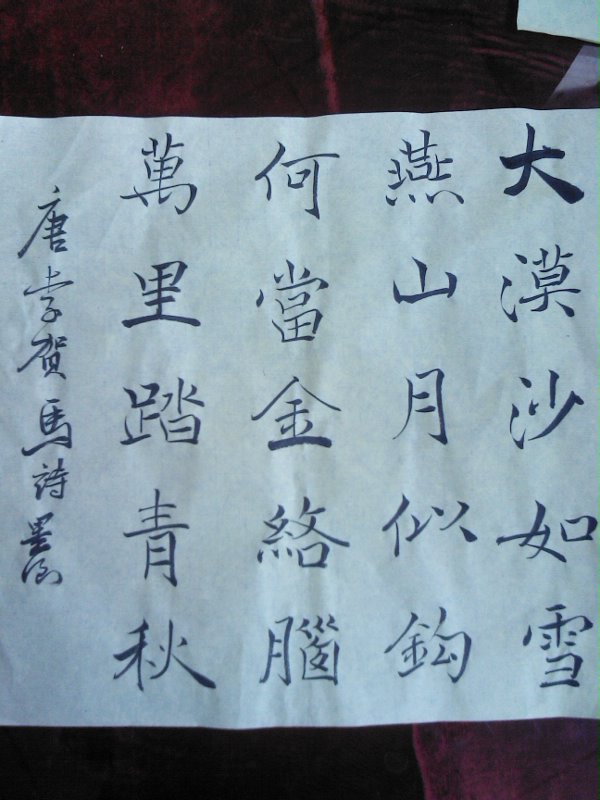 大漠沙如雪
燕山月似鉤
何當金絡腦
萬里踏青秋
唐李贺馬詩墨